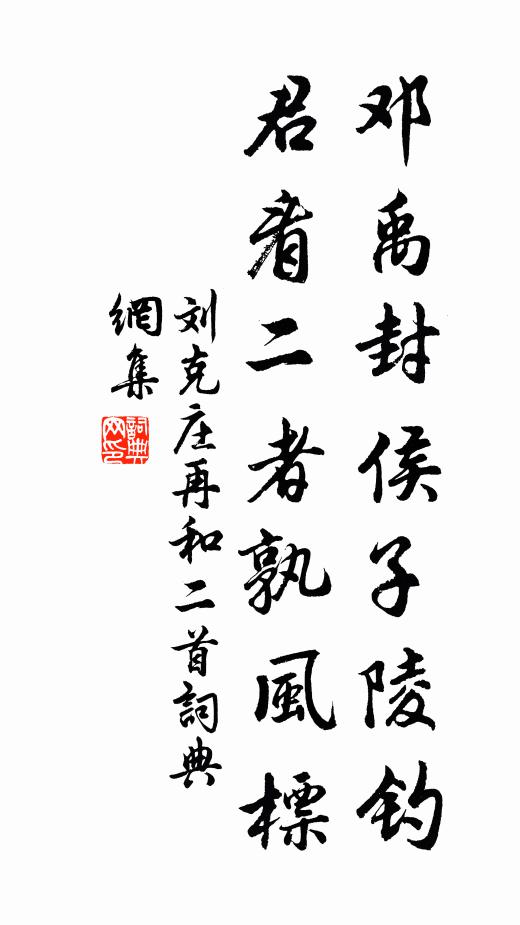 邓禹封侯子陵钓
君看二者孰風標
刘克庄再和二首詞典
網集
詞典
网印